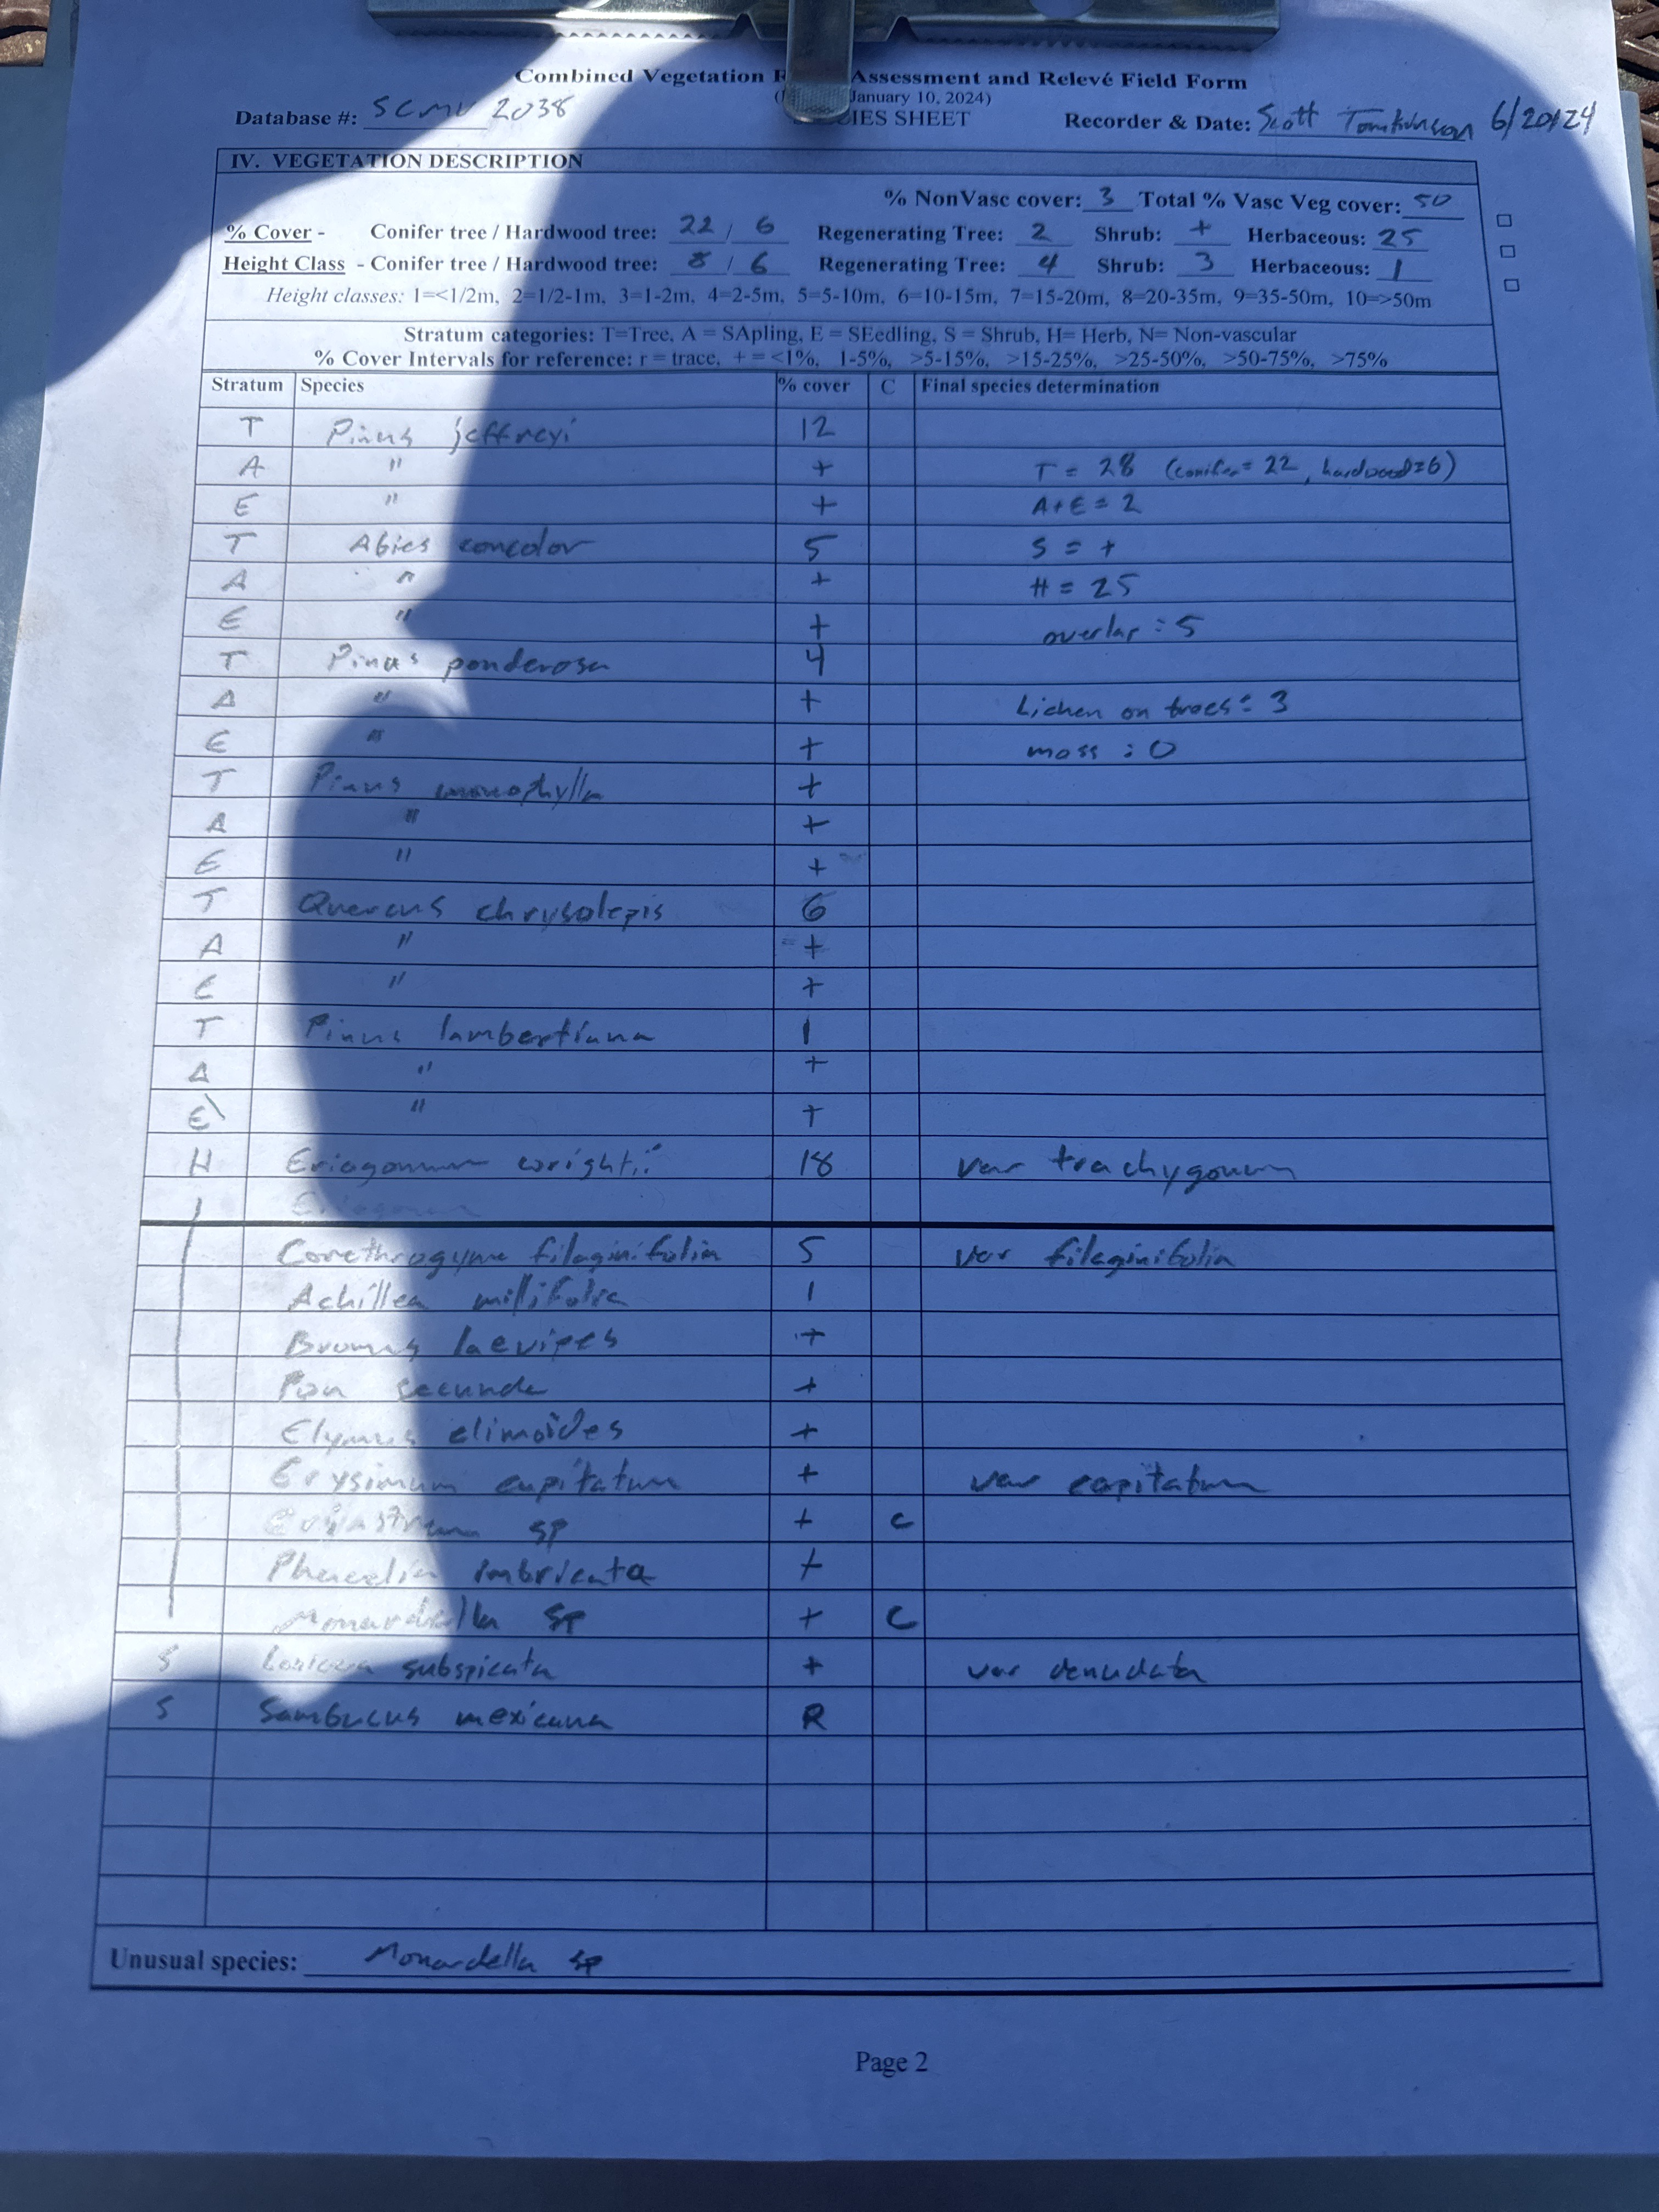 Combined Vegetation R Assessment and Relevé Field Form
January 10, 2024)
Database #: SCMV 2038 IES SHEET Recorder & Date: Scott Tomkinson 6/20/24
IV. VEGETATION DESCRIPTION
% NonVasc cover: 3 Total % Vasc Veg cover: 50
% Cover - Conifer tree / Hardwood tree: 22 / 6 Regenerating Tree: 2 Shrub: + Herbaceous: 25
Height Class - Conifer tree / Hardwood tree: 8 / 6 Regenerating Tree: 4 Shrub: 3 Herbaceous: 1
Height classes: 1=<1/2m, 2=1/2-1m, 3=1-2m, 4=2-5m, 5=5-10m, 6=10-15m, 7=15-20m, 8=20-35m, 9=35-50m, 10=>50m
Stratum categories: T=Tree, A = SApling, E = SEedling, S = Shrub, H= Herb, N= Non-vascular
% Cover Intervals for reference: r = trace, + = <1%, 1-5%, >5-15%, >15-25%, >25-50%, >50-75%, >75%
Stratum Species % cover C Final species determination
T Pinus jeffreyi 12
A " + T = 28 (conifer = 22, hardwood=6)
E " + A+E = 2
T Abies concolor 5 S = +
A " + H = 25
E " + overlap : 5
T Pinus ponderosa 4
A " + Lichen on trees: 3
E " + moss : 0
T Pinus monophylla +
A " +
E " +
T Quercus chrysolepis 6
A " +
E " +
T Pinus lambertiana 1
A " +
E " +
H Eriogonum wrightii 18 var trachygonum
Corethrogyne filaginifolia 5 var filaginifolia
Achillea millifolia 1
Bromus laevipes +
Poa secunda +
Elymus elimoides +
Erysimum capitatum + var capitatum
Eriastrum sp + C
Phacelia imbricata +
Monardella sp + C
S Lonicera subspicata + var denudata
S Sambucus mexicana R
Unusual species: Monardella sp
Page 2